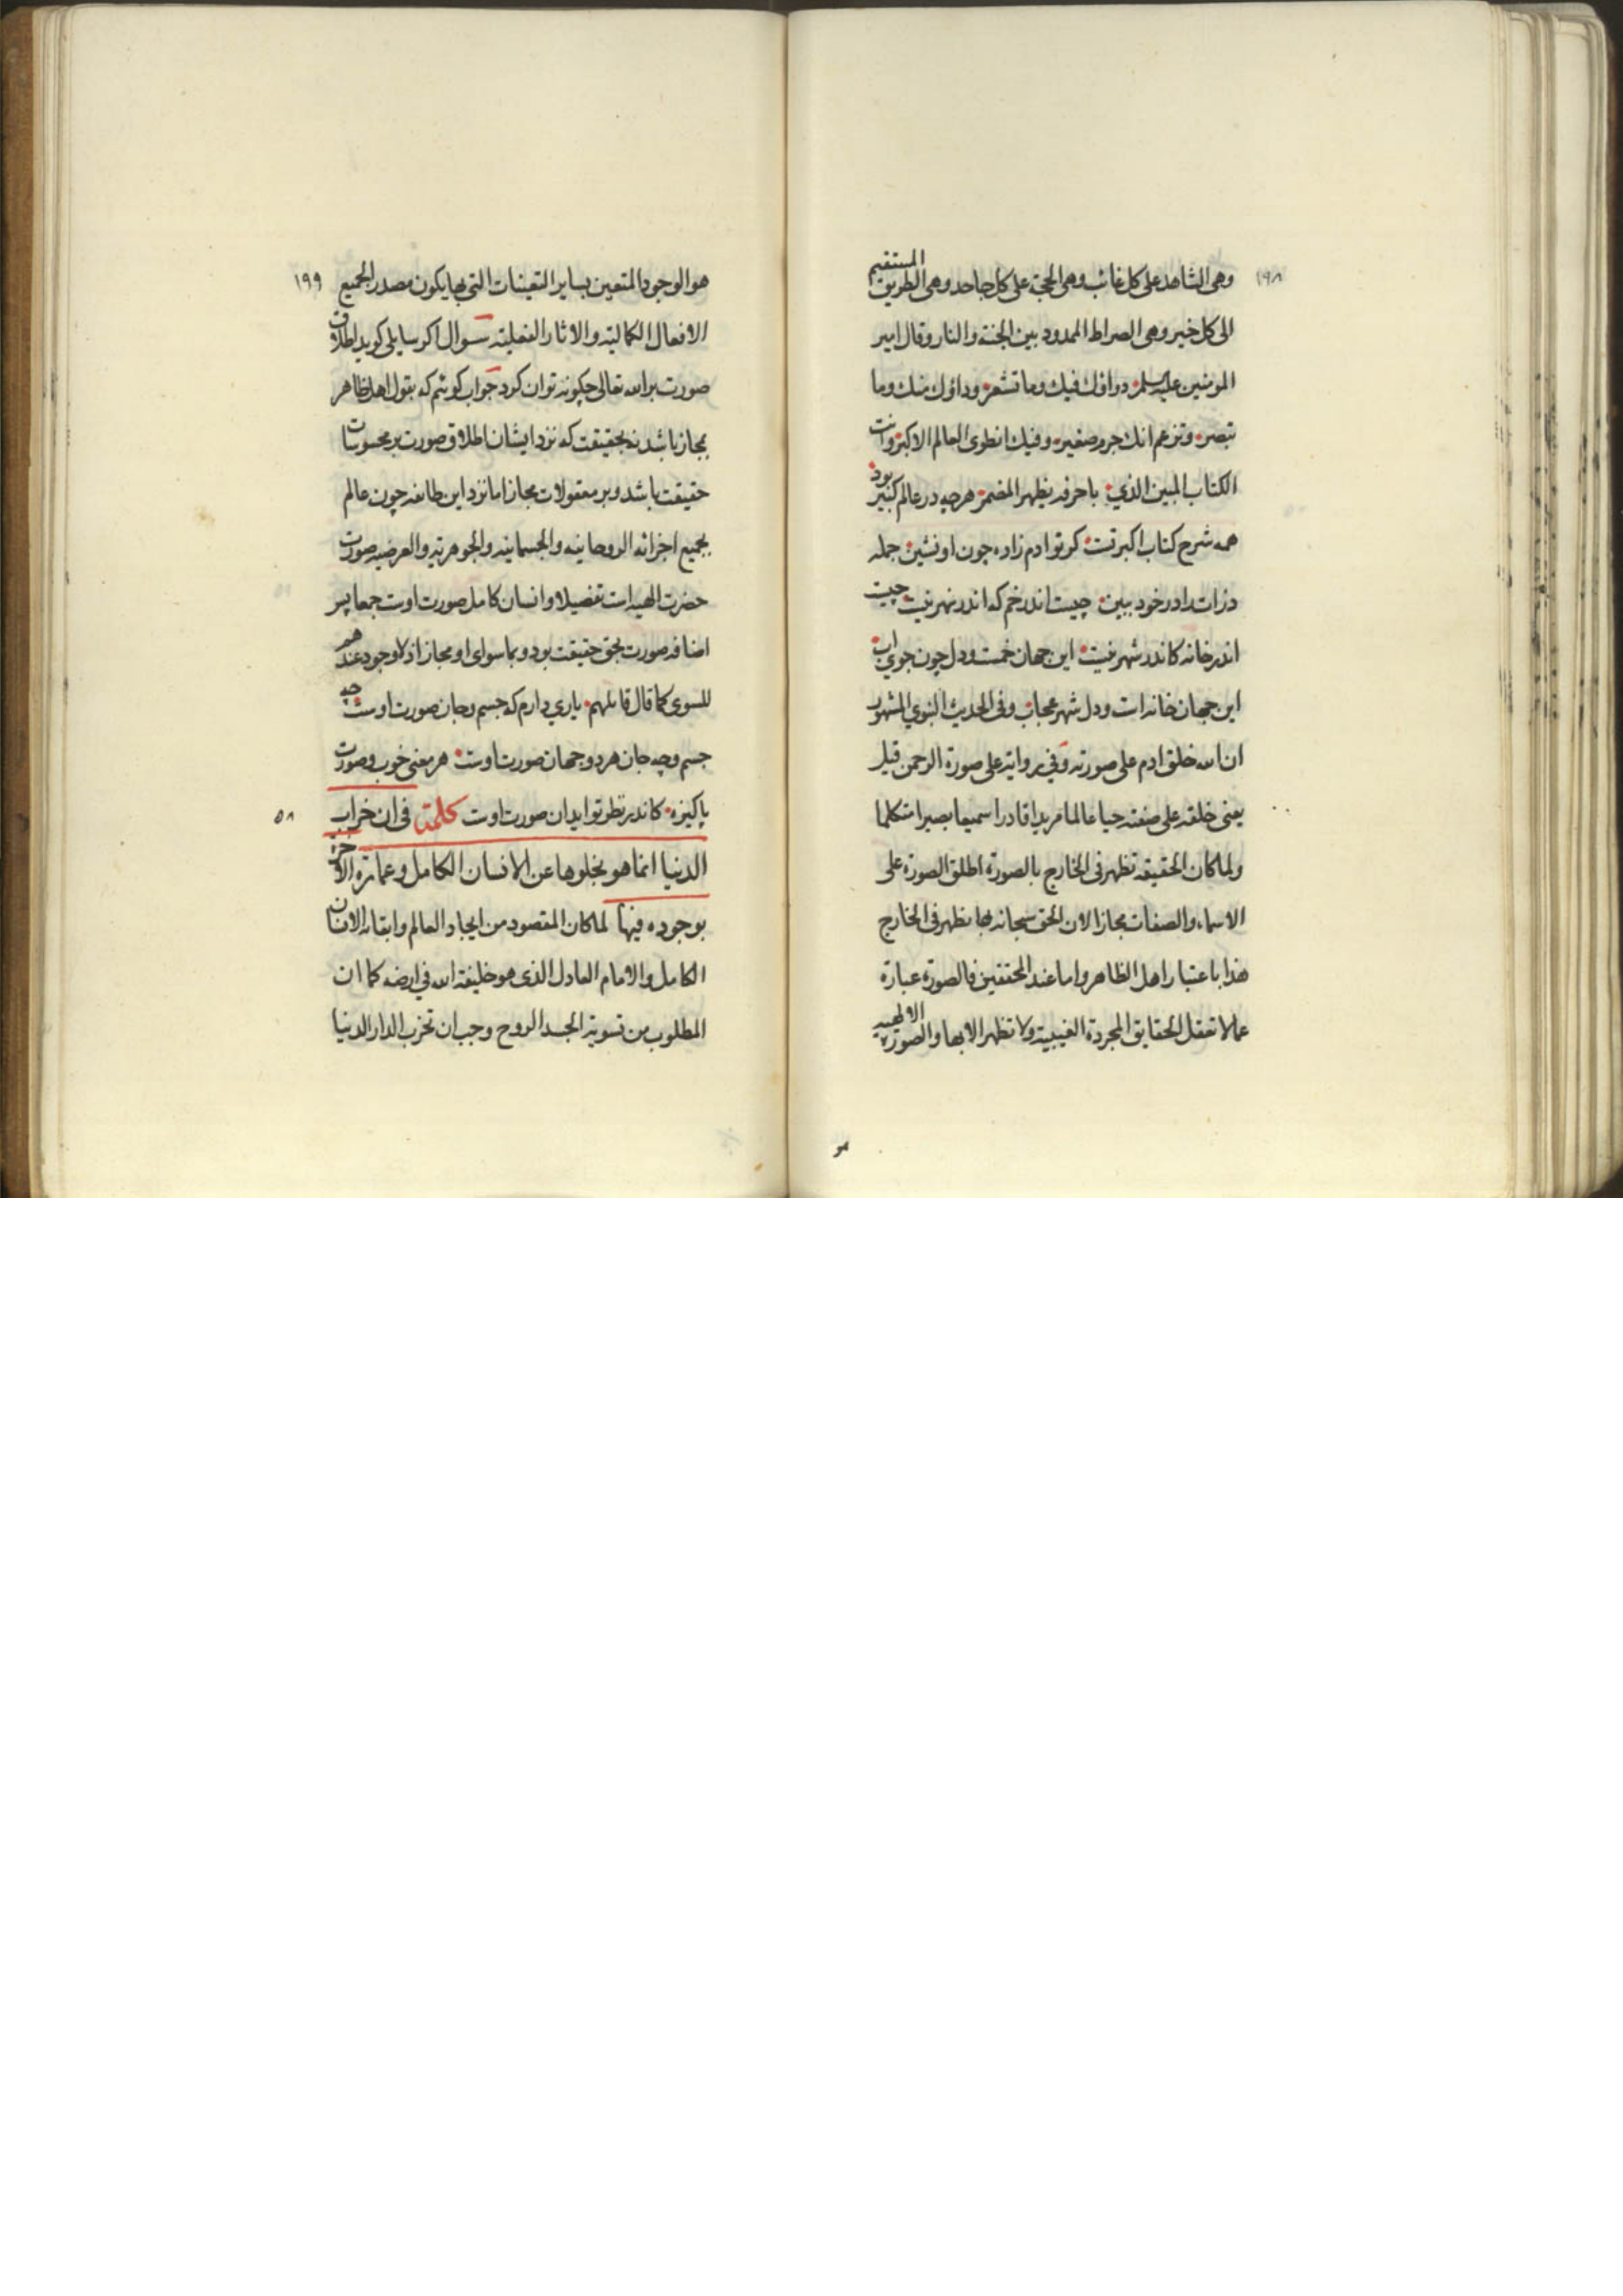 ١٩٨
وهى الشاهد على كل غائب وهى الحجة على كل جاحد وهى الطريق المستقيم
الى كل خير وهى الصراط الممدود بين الجنة والنار وقال امير
المومنين عليه السلم دواؤك فيك وما تشعر وداؤك منك وما
تبصر وتزعم انك جرم صغير وفيك انطوى العالم الاكبر وانت
الكتاب المبين الذي باحرفه يظهر المضمر هرچه در عالم كبير بود
همه شرح كتاب اكبر تست كر تو ادم زاده چون او نشين جمله
ذرات را در خود ببين چيست اندر خم كه اندر نهر نيست چيست
اندر خانه كاندر شهر نيست اين جهان خمست ودل چون جوي اب
اين جهان خانه است ودل شهر عجاب وفى الحديث النبوي المشهور
ان الله خلق ادم على صورته وفي رواية على صورة الرحمن قيل
يعنى خلقه على صفته حيا عالما مريدا قادرا سميعا بصيرا متكلما
ولما كان الحقيقة تظهر فى الخارج بالصورة اطلق الصورة على
الاسماء والصفات مجازا لان الحق سبحانه بها يظهر فى الخارج
هذا باعتبار اهل الظاهر واما عند المحققين فالصورة عبارة
عما لا تعقل الحقايق المجردة الغيبية ولا تظهر الا بها والصورة الالهية
هو
١٩٩
هو الوجود المتعين بساير التعينات التي بها يكون مصدر الجميع
الافعال الكمالية والاثار الفعلية سوال اكر سايلى كويد اطلاق
صورت بر الله تعالى چكونه توان كرد جواب كوئيم كه بقول اهل ظاهر
بمجاز باشد نه بحقيقت كه نزد ايشان اطلاق صورت بر محسوسات
حقيقت باشد وبر معقولات مجاز اما نزد اين طائفه چون عالم
بجميع اجزائه الروحانية والجسمانية والجوهرية والعرضية صورت
حضرت الهيه است تفصيلا وانسان كامل صورت اوست جمعا پس
اضافه صورت بحق حقيقت بود وبما سواى او مجاز اذ لا وجود عندهم
للسوى كما قال قائلهم ياري دارم كه جسم وجان صورت اوست چه
جسم وچه جان هر دو جهان صورت اوست هر معنى خوب وصورت
پاكيزه كاندر نظر تو ايد ان صورت اوست كلمة فى ان خراب
٥٨
الدنيا انما هو بخلوها عن الانسان الكامل وعمارة الاخرة
بوجوده فيها لما كان المقصود من ايجاد العالم وابقائه الانسان
الكامل والامام العادل الذى هو خليفة الله في ارضه كما ان
المطلوب من تسوية الجسد الروح وجب ان تخرب الدار الدنيا